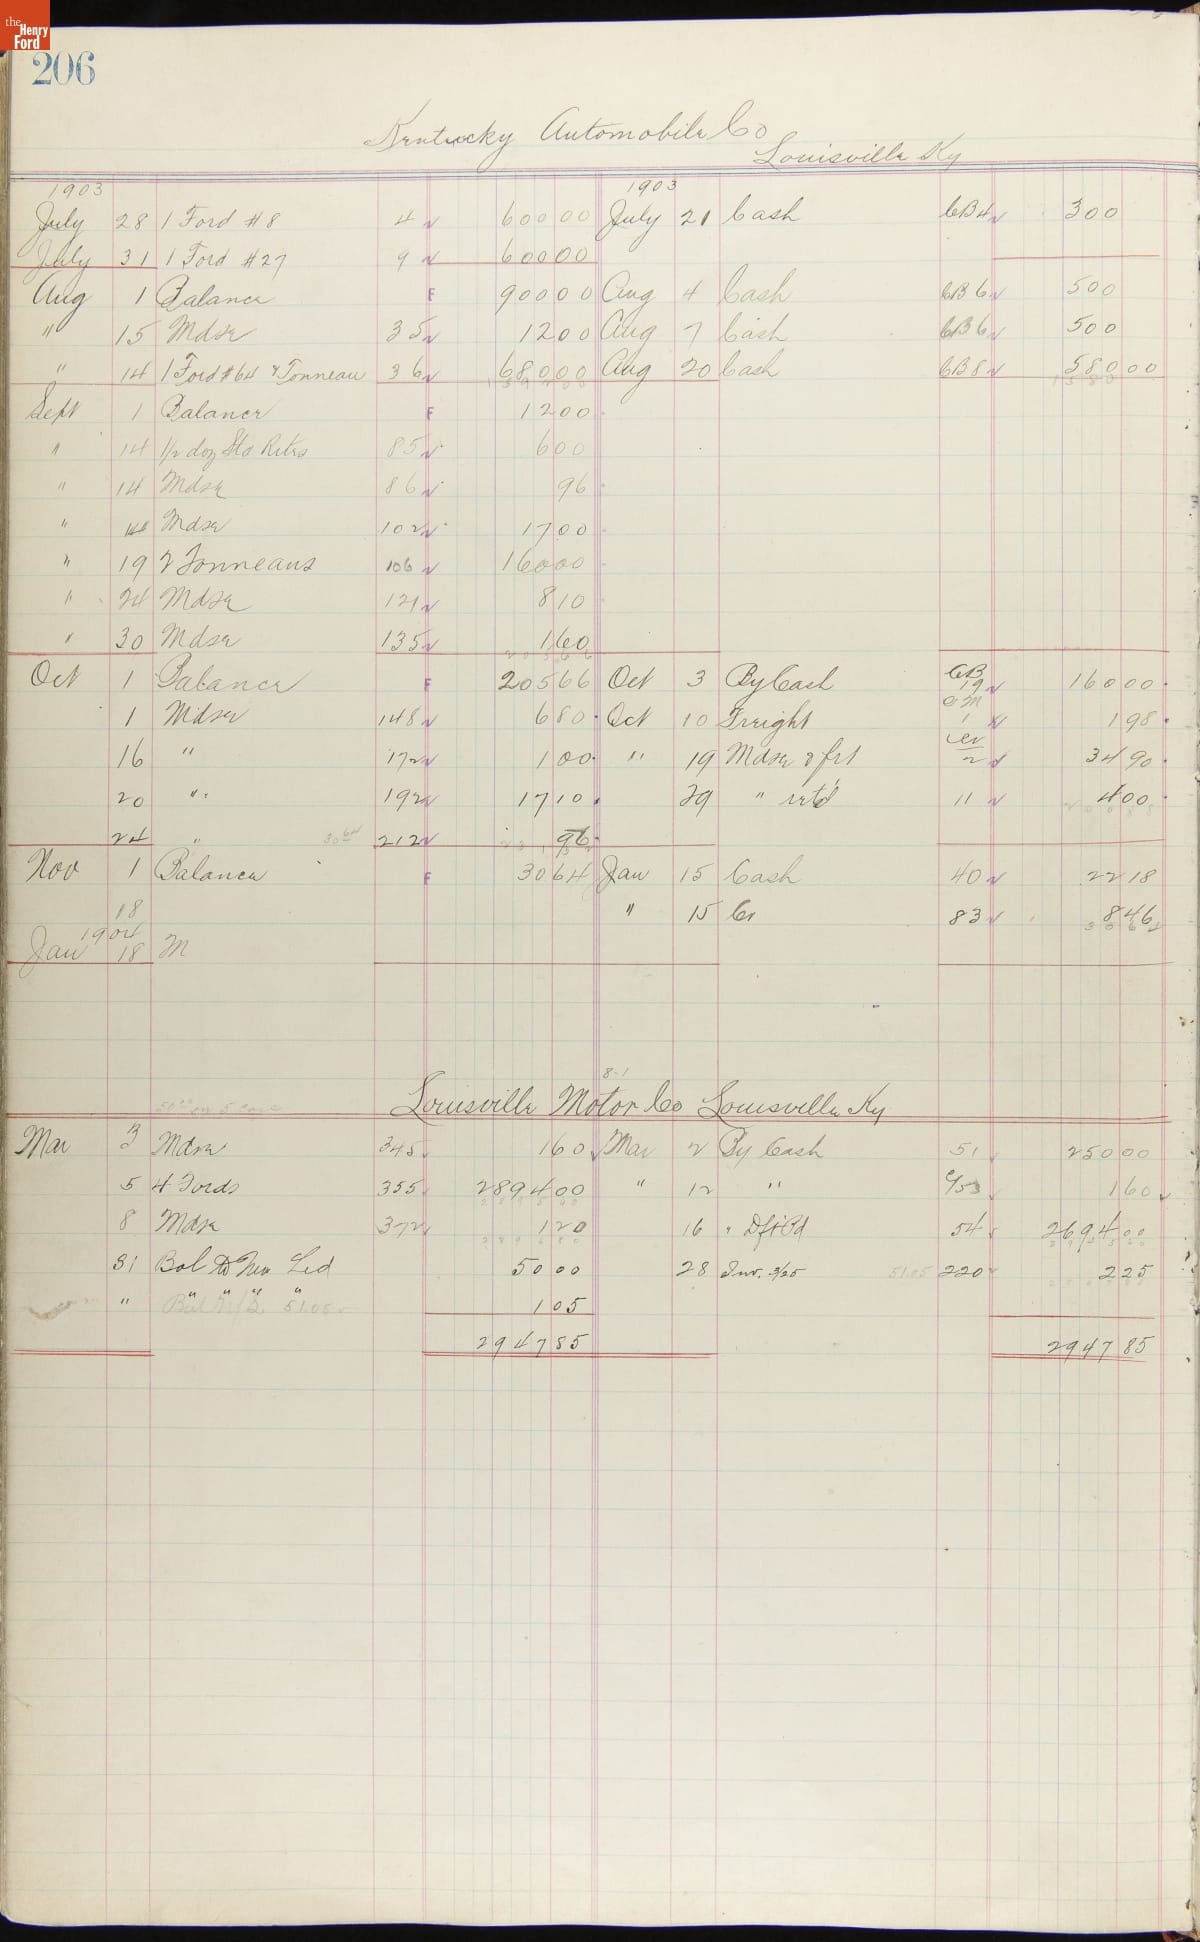 the Henry Ford
206
Kentucky Automobile Co
Louisville Ky
1903 1903
July 28 1 Ford #8 4 600 00 July 21 Cash CB4 300
July 31 1 Ford #27 9 600 00
Aug 1 Balance F 900 00 Aug 4 Cash CB6 500
" 15 Mdse 35 12 00 Aug 7 Cash CB6 500
" 14 1 Ford #64 & Tonneau 36 680 00 Aug 20 Cash CB8 580 00
Sept 1 Balance F 12 00
" 14 1/2 doz Sta Rites 85 6 00
" 14 Mdse 86 96
" Mdse 102 17 00
" 19 2 Tonneaus 106 160 00
" 24 Mdse 121 8 10
" 30 Mdse 135 1 60
Oct 1 Balance F 205 66 Oct 3 By Cash CB 19 160 00
1 Mdse 148 6 80 Oct 10 Freight 1 1 98
16 " 172 1 00 " 19 Mdse & frt 2 34 90
20 " 192 17 10 29 " retd 11 4 00
24 " 30 64 212 96
Nov 1 Balance F 30 64 Jan 15 Cash 40 22 18
18 " 15 Cr 83 8 46
1904
Jan 18 M
8-1
Louisville Motor Co Louisville Ky
50 00 on 5 cars
Mar 3 Mdse 345 1 60 Mar 2 By Cash 51 250 00
5 4 Fords 355 2894 00 " 12 " 53 1 60
8 Mdse 372 1 20 16 " Dft Pd 54 2694 00
31 Bal To New Led 50 00 28 Inv. 3/25 51.05 220 2 25
" " " " " 1 05
Bal 51.05
2947 85 2947 85